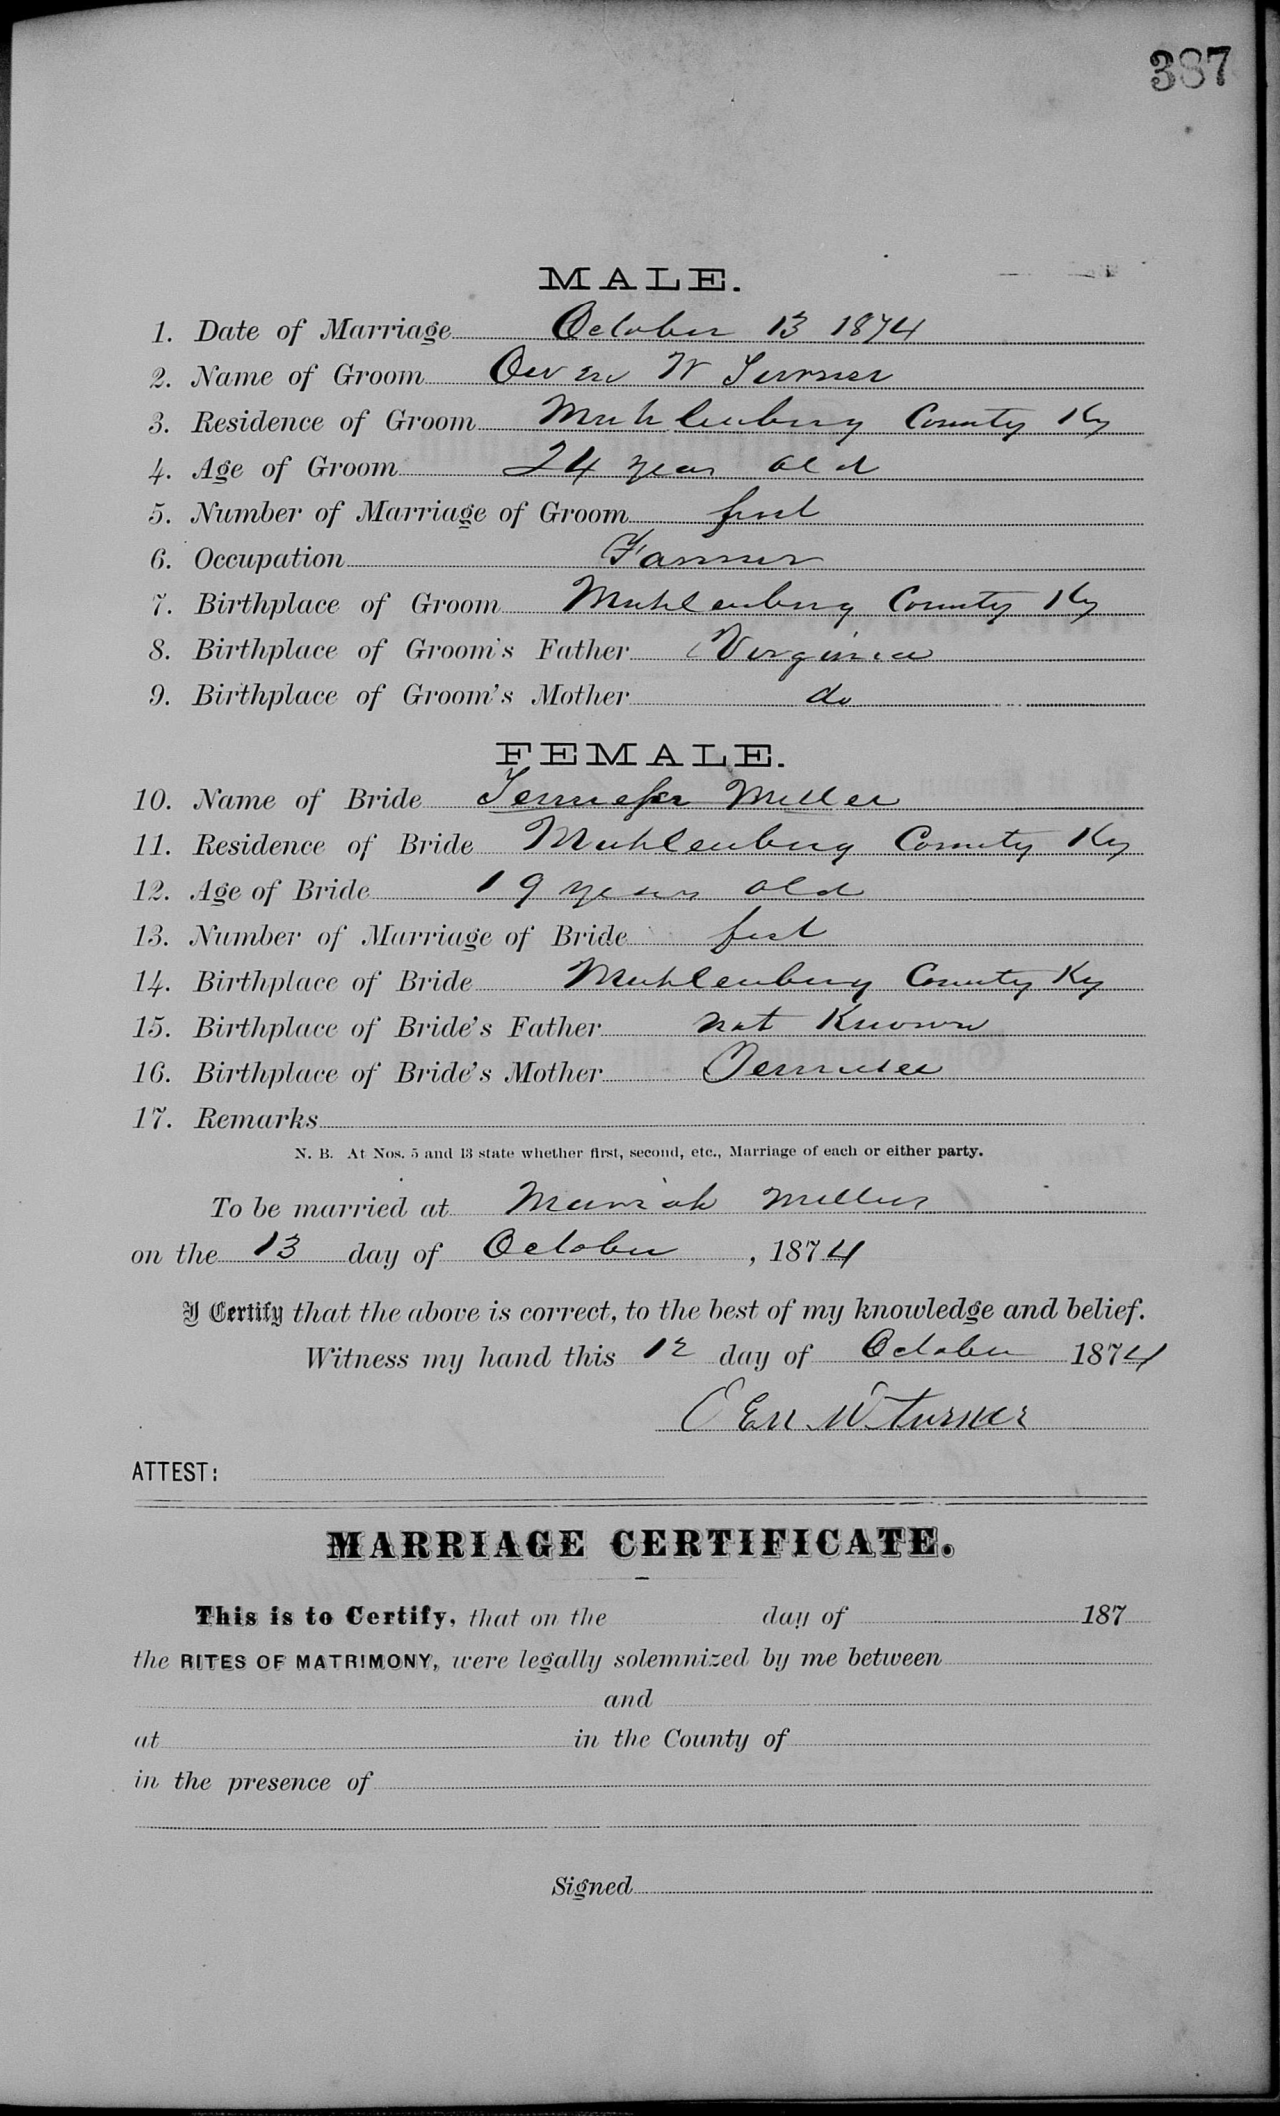 387
MALE.
1. Date of Marriage October 13 1874
2. Name of Groom Owen W Turner
3. Residence of Groom Muhlenberg County Ky
4. Age of Groom 24 years old
5. Number of Marriage of Groom first
6. Occupation Farmer
7. Birthplace of Groom Muhlenberg County Ky
8. Birthplace of Groom's Father Virginia
9. Birthplace of Groom's Mother do
FEMALE.
10. Name of Bride Miller
11. Residence of Bride Muhlenberg County Ky
12. Age of Bride 19 years old
13. Number of Marriage of Bride first
14. Birthplace of Bride Muhlenberg County Ky
15. Birthplace of Bride's Father not Known
16. Birthplace of Bride's Mother Tennessee
17. Remarks
N. B. At Nos. 5 and 13 state whether first, second, etc., Marriage of each or either party.
To be married at Mariah Millers
on the 13 day of October, 1874
I Certify that the above is correct, to the best of my knowledge and belief.
Witness my hand this 12 day of October 1874
W Turner
ATTEST:
MARRIAGE CERTIFICATE.
This is to Certify, that on the day of 187
the RITES OF MATRIMONY, were legally solemnized by me between
and
at in the County of
in the presence of
Signed